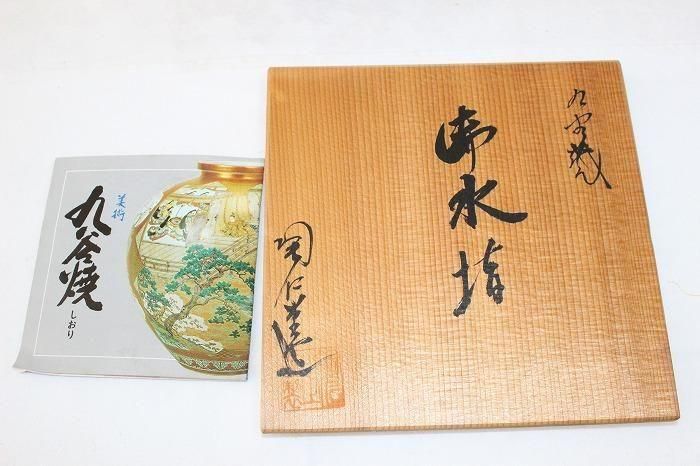 美術
九谷焼
しおり
九谷焼
御水指
陶仁造